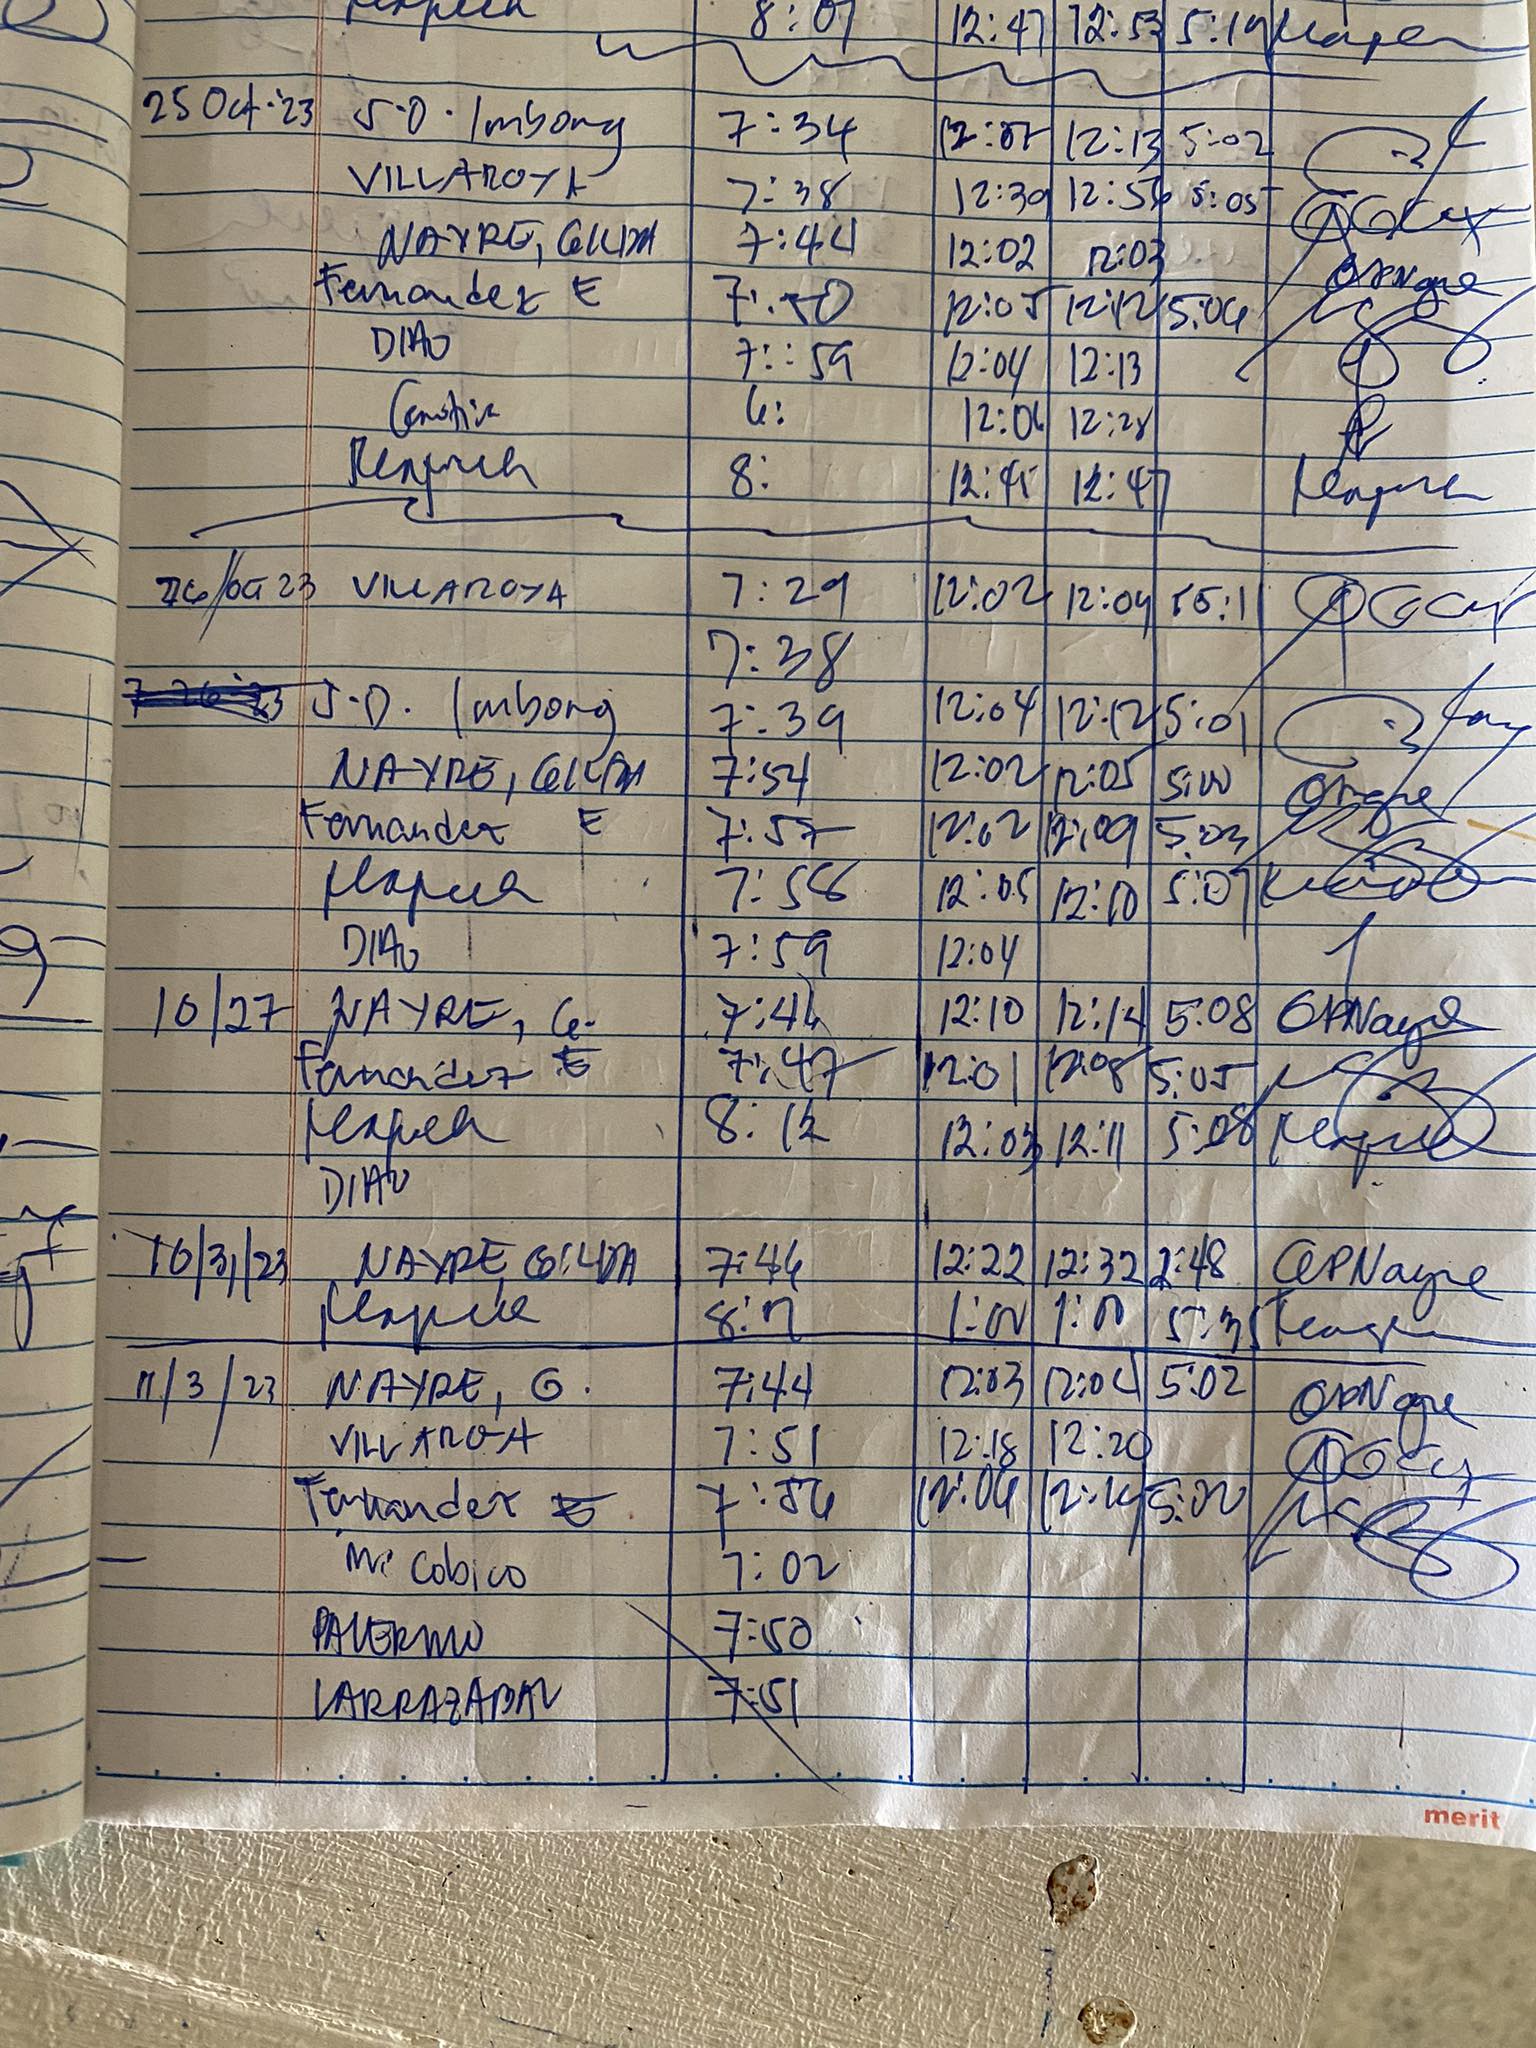 12:47 12:53 5:19
25 Oct '23 J.D. Imbong 7:34 12:07 12:13 5:02
VILLAROYA 7:38 12:30 12:56 5:05
NAYRE, GILDA 7:44 12:02 12:03
Fernandez E 7:50 12:05 12:12 5:06
DIAO 7:59 12:04 12:13
6: 12:06 12:28
8: 12:45 12:47
26/Oct 23 VILLAROYA 7:29 12:02 12:04 5:11
7:38
J.D. Imbong 7:39 12:04 12:12 5:01
NAYRE, GILDA 7:54 12:02 12:05 5:00
Fernandez E 7:57 12:02 12:09 5:03
7:58 12:05 12:10 5:07
DIAO 7:59 12:04
10/27 NAYRE, G. 7:46 12:10 12:14 5:08 GPNayre
Fernandez E 7:47 12:01 12:08 5:05
8:12 12:03 12:11 5:08
DIAO
10/31/23 NAYRE, GILDA 7:46 12:22 12:32 2:48 GPNayre
1:00 1:00 5:35
11/3/23 NAYRE, G. 7:44 12:03 12:04 5:02 GPNayre
VILLAROYA 7:51 12:18 12:20
Fernandez E 7:56 12:06 12:14 5:02
Mi Cobico 7:02
PALERMO 7:50
LARRAZABAL 7:51
merit